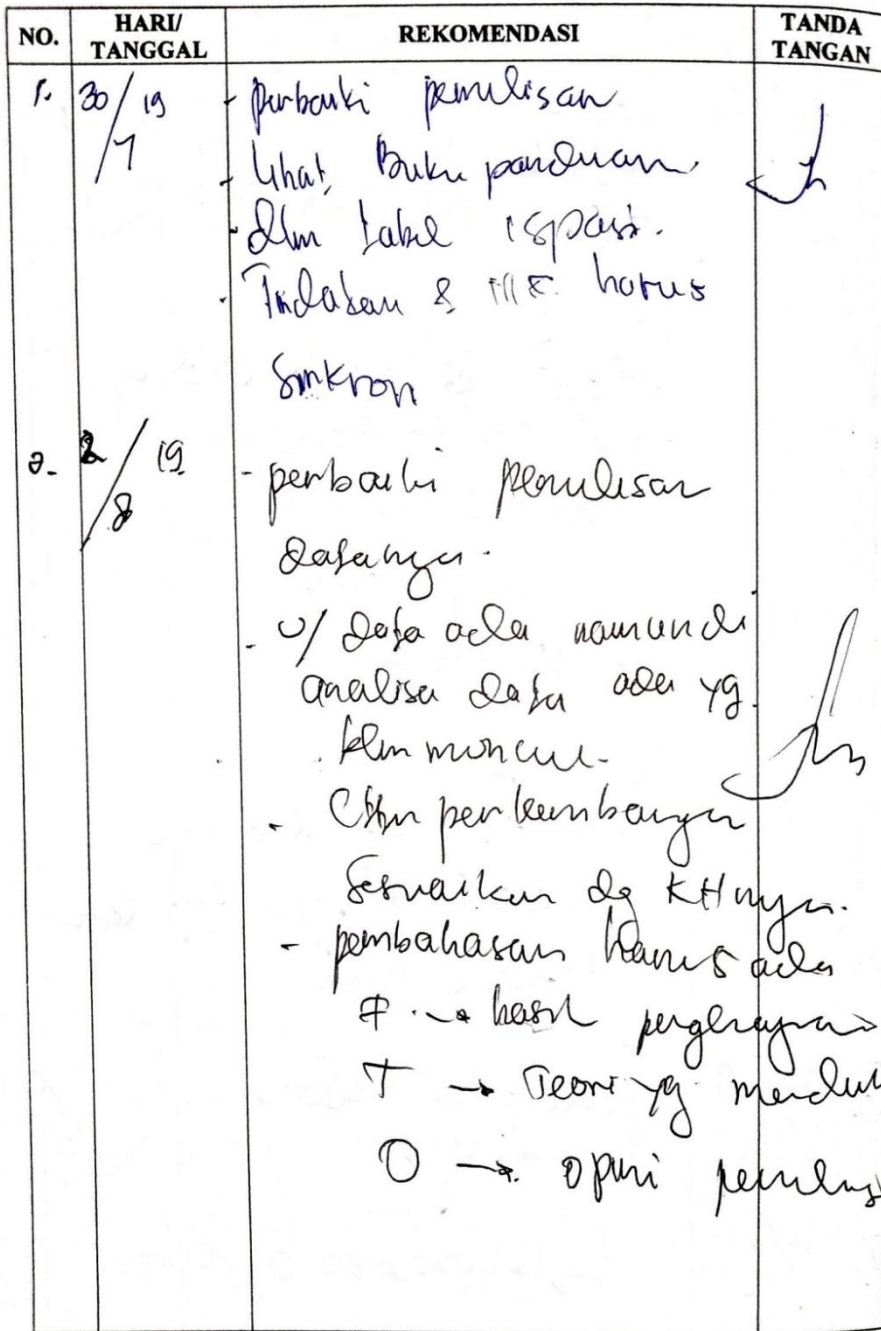 NO. HARI/ TANGGAL REKOMENDASI TANDA TANGAN
1. 30/7 19 - perbaiki penulisan
- Lihat Buku panduan.
- dlm tabel 1 spasi.
- Tindakan & harus
sinkron
2. 2/8 19 - perbaiki penulisan
datanya.
- U/ data ada namun di
analisa data ada yg
blm muncul.
- Cttn perkembangan
Sesuaikan dg KHnya.
- pembahasan harus ada
F → hasil pengkajian
T → Teori yg menduk
O → opini penulis